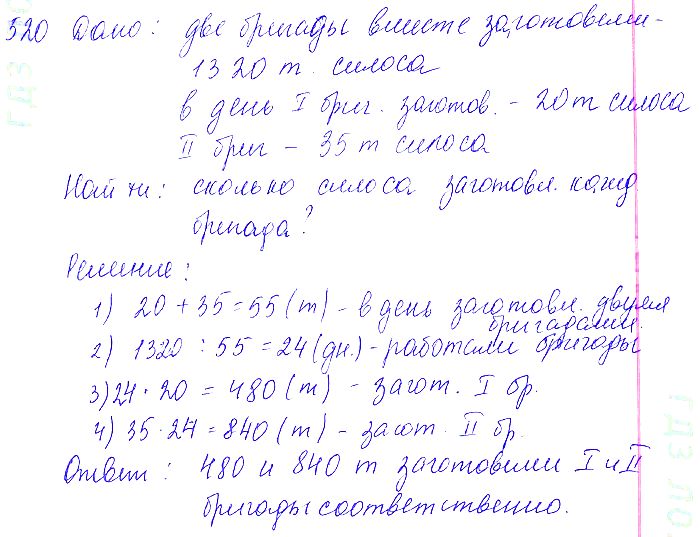 520 Дано: две бригады вместе заготовили -
1320 т. силоса
в день I бриг. заготов. - 20 т силоса
II бриг - 35 т силоса
Найти: сколько силоса заготовл. кажд
бригада?
Решение:
1) 20 + 35 = 55 (т) - в день заготовл. двумя
бригадами.
2) 1320 : 55 = 24 (дн.) - работали бригады
3) 24 · 20 = 480 (т) - загот. I бр.
4) 35 · 24 = 840 (т) - загот. II бр.
Ответ: 480 и 840 т заготовили I и II
бригады соответственно.
ГДЗ
ГДЗ ПО.